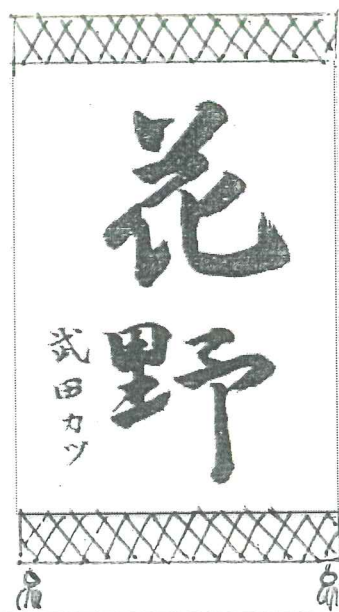 花野
武田カツ